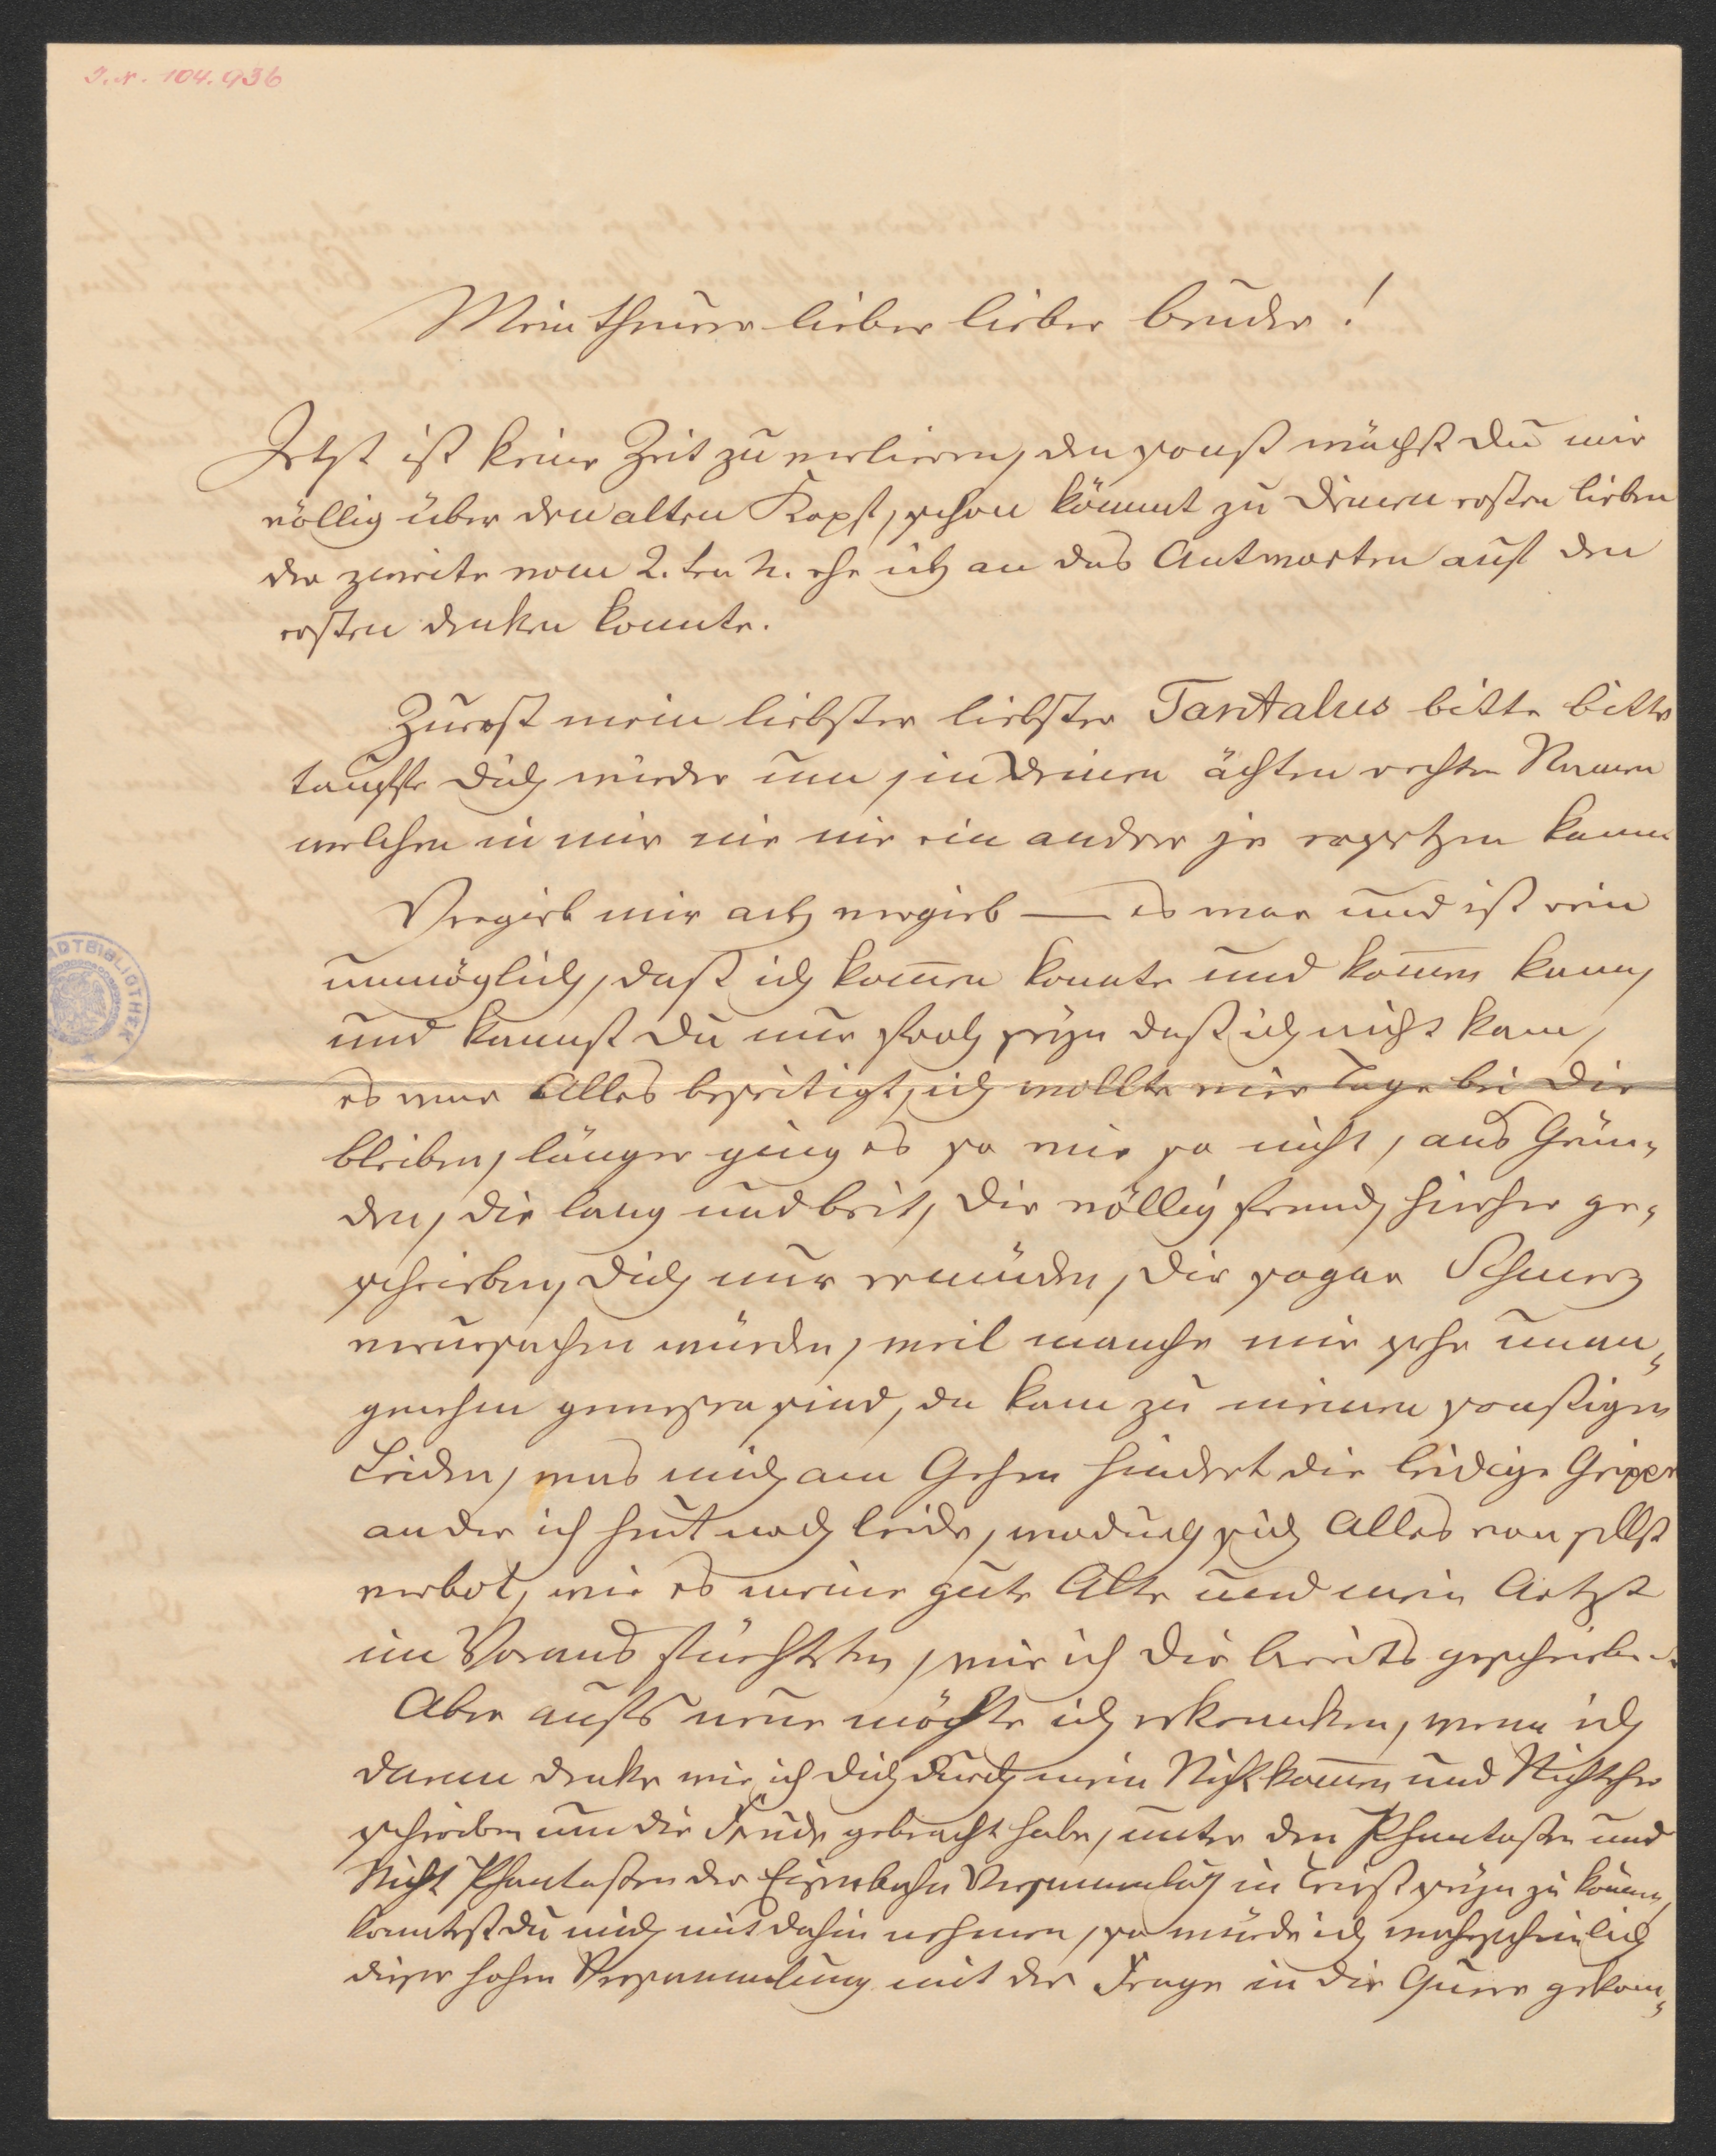 I. N. 104.936
Mein theurer lieber lieber Bruder!
Jetzt ist keine Zeit zu verlieren, den sonst wächst Du mir
völlig über den alten Kopf, schon kömmt zu Deinem ersten lieben
der zweite vom 2. ten h. ehe ich an das Antworten auf den
ersten denken konnte.
Zuerst mein liebster liebster Tantalus bitte bitte
tauffe Dich wieder um, in Deinen ächten rechten Namen
welchen in mir nie nie ein andrer je ersetzen kann
Vergieb mir ach vergieb — es war und ist rein
unmöglich, daß ich kommen konnte und kommen kann,
und kannst Du nur froh seyn daß ich nicht kam,
es war Alles beseitigt, ich wollte vier Tage bei Dir
bleiben, länger ging es so wie so nicht, aus Grün„
den, die lang und breit, Dir völlig fremd, hierher ge„
schrieben, Dich nur ermüden, Dir sogar Schmerz
verursachen würden, weil manche mir sehr unan„
genehm gewesen sind, da kam zu meinen sonstigen
Leiden, was mich am Gehen hindert die leidige Grippe
an der ich heut noch leide, wodurch sich Alles von selbst
verbot, wie es meine gute Alte und mein Artzt
im Voraus fürchteten, wie ich Dir bereits geschrieben.
Aber aufs neue möchte ich erkranken, wenn ich
daran denke wie ich Dich durch mein Nichtkommen und Nichther
schreiben um die Freude gebracht habe, unter den Phantasten und
Nicht Phantasten der Eisenbahn Versammlung in Triest seyn zu können,
konntest Du mich mit dahin nehmen, so würde ich wahrscheinlich
dieser hohen Versammlung mit der Frage in die Quere gekom„
STADTBIBLIOTHEK